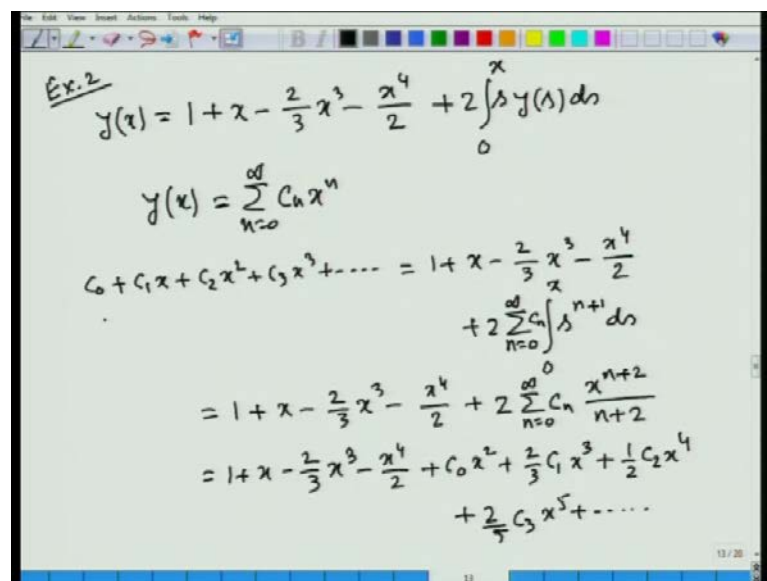 File Edit View Insert Actions Tools Help
Ex.2
y(x) = 1 + x - \frac{2}{3} x^3 - \frac{x^4}{2} + 2 \int_0^x s y(s) ds
y(x) = \sum_{n=0}^{\infty} C_n x^n
C_0 + C_1 x + C_2 x^2 + C_3 x^3 + ---- = 1 + x - \frac{2}{3} x^3 - \frac{x^4}{2}
+ 2 \sum_{n=0}^{\infty} C_n \int_0^x s^{n+1} ds
= 1 + x - \frac{2}{3} x^3 - \frac{x^4}{2} + 2 \sum_{n=0}^{\infty} C_n \frac{x^{n+2}}{n+2}
= 1 + x - \frac{2}{3} x^3 - \frac{x^4}{2} + C_0 x^2 + \frac{2}{3} C_1 x^3 + \frac{1}{2} C_2 x^4
+ \frac{2}{5} C_3 x^5 + -----
13 / 20
13